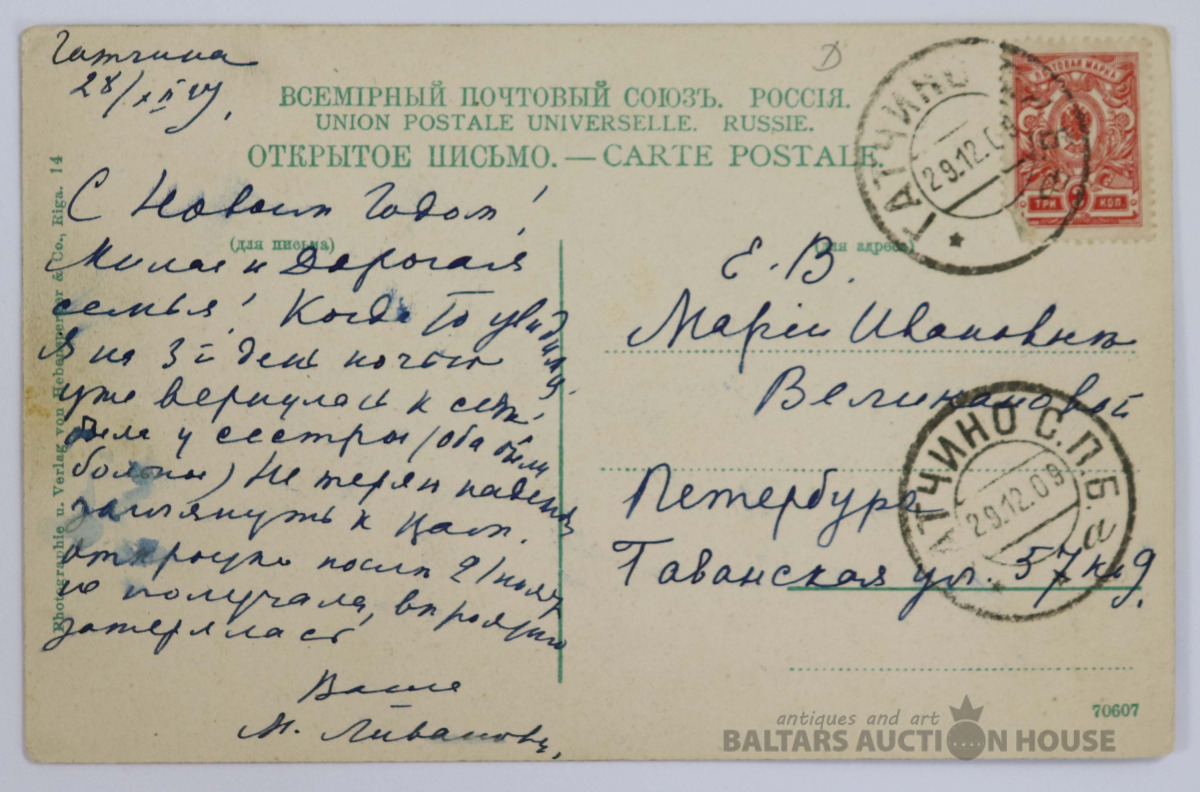 Гатчина
28/XII 09.
ВСЕМІРНЫЙ ПОЧТОВЫЙ СОЮЗЪ. РОССІЯ.
UNION POSTALE UNIVERSELLE. RUSSIE.
ОТКРЫТОЕ ПИСЬМО. — CARTE POSTALE.
ПОЧТОВАЯ МАРКА
ТРИ 3 КОП
ГАТЧИНО
29.12.09
Photographie u. Verlag von Hebensperger & Co., Riga. 14
(для письма)
С Новым Годом!
Милая и Дорогая
семья! Когда то увидимся
Я на 3й день ночью
уже вернулась к себе
была у сестры (оба были
больны) Не теряю надежды
заглянуть к Вам.
открытки посл 2/ нояб
не получала, вероятно
затерялась
Ваша
М. Ливанова,
(для адреса)
Е. В.
Маріи Ивановнѣ
Великановой
Петербург
Гаванская ул. 57 кв 9.
ГАТЧИНО С.П.Б.
29.12.09
а
70607
antiques and art
BALTARS AUCTION HOUSE